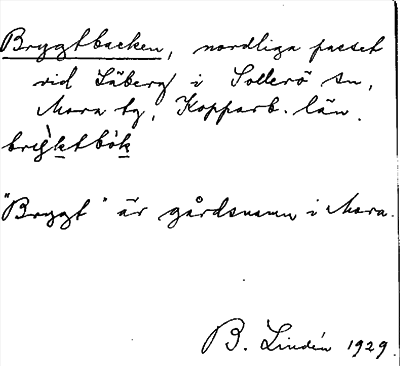 Brygtbacken, nordliga passet
vid Läberg i Sollerö sn,
Mora tg, Kopparb. län.
bry̆ktbòk
"Brygt" är gårdsnamn i Mora.
B. Lindén 1929.